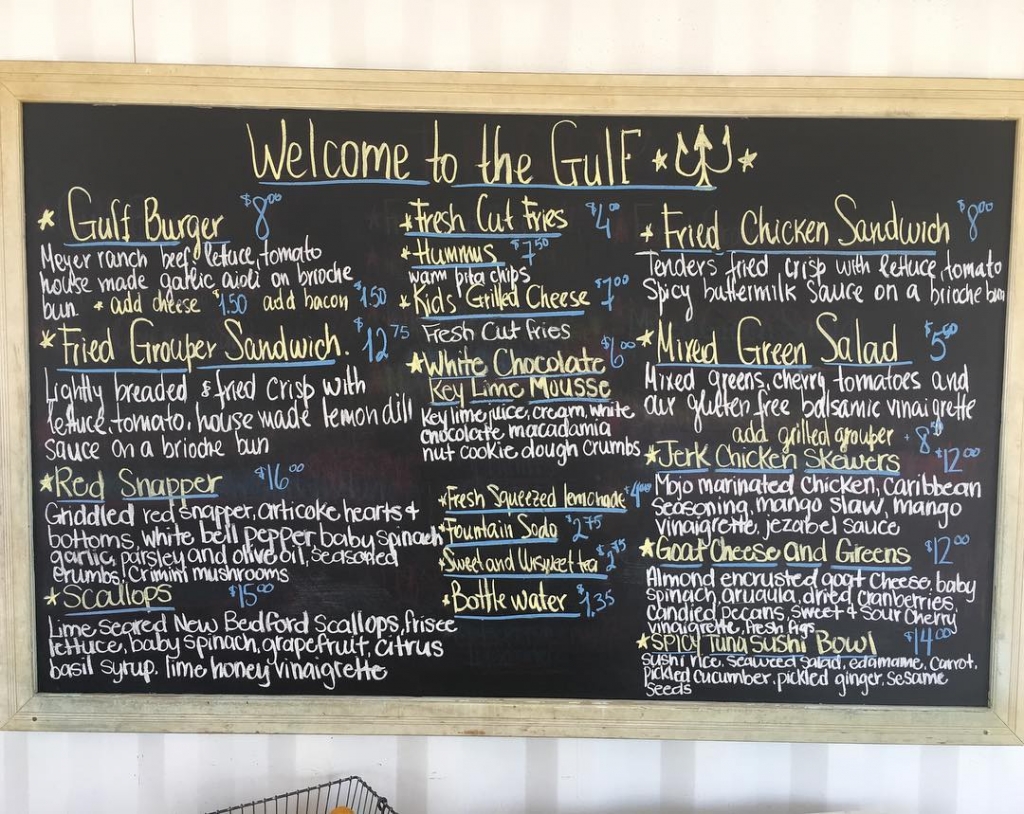 Welcome to the Gulf
Gulf Burger $8.00
Meyer ranch beef, lettuce, tomato
house made garlic aioli on brioche
bun * add cheese $1.50 add bacon $1.50
Fried Grouper Sandwich. $12.75
Lightly breaded & fried crisp with
lettuce, tomato, house made lemon dill
sauce on a brioche bun
Red Snapper $16.00
Griddled red snapper, articoke hearts &
bottoms, white bell pepper baby spinach
garlic, parsley and olive oil, seasoned
crumbs, Crimini mushrooms
Scallops $15.00
Lime Seared New Bedford Scallops, frisee
lettuce, baby spinach, grapefruit, citrus
basil syrup. lime honey vinaigrette
Fresh Cut Fries $4.00
Hummus $7.50
warm pita chips
Kids' Grilled Cheese $7.00
Fresh Cut fries
White Chocolate $6.00
Key Lime Mousse
Key lime juice, cream, white
chocolate macadamia
nut cookie dough crumbs
Fresh Squeezed lemonade $4.00
Fountain Soda $2.75
Sweet and Unsweet tea $2.75
Bottle water $1.35
Fried Chicken Sandwich $8.00
Tenders fried crisp with lettuce, tomato
Spicy buttermilk Sauce on a brioche bun
Mixed Green Salad $5.50
Mixed greens, cherry tomatoes and
our gluten free balsamic vinaigrette
add grilled grouper + 8
Jerk Chicken Skewers $12.00
Mojo marinated Chicken, Caribbean
Seasoning, mango Slaw, mango
vinaigrette, jezabel sauce
Goat Cheese and Greens $12.00
Almond encrusted goat cheese, baby
spinach, arugula, dried cranberries
candied pecans, sweet & sour cherry
vinaigrette, fresh figs
Spicy Tuna Sushi Bowl $14.00
sushi rice, seaweed salad, edamame, carrot,
pickled cucumber, pickled ginger, sesame
seeds